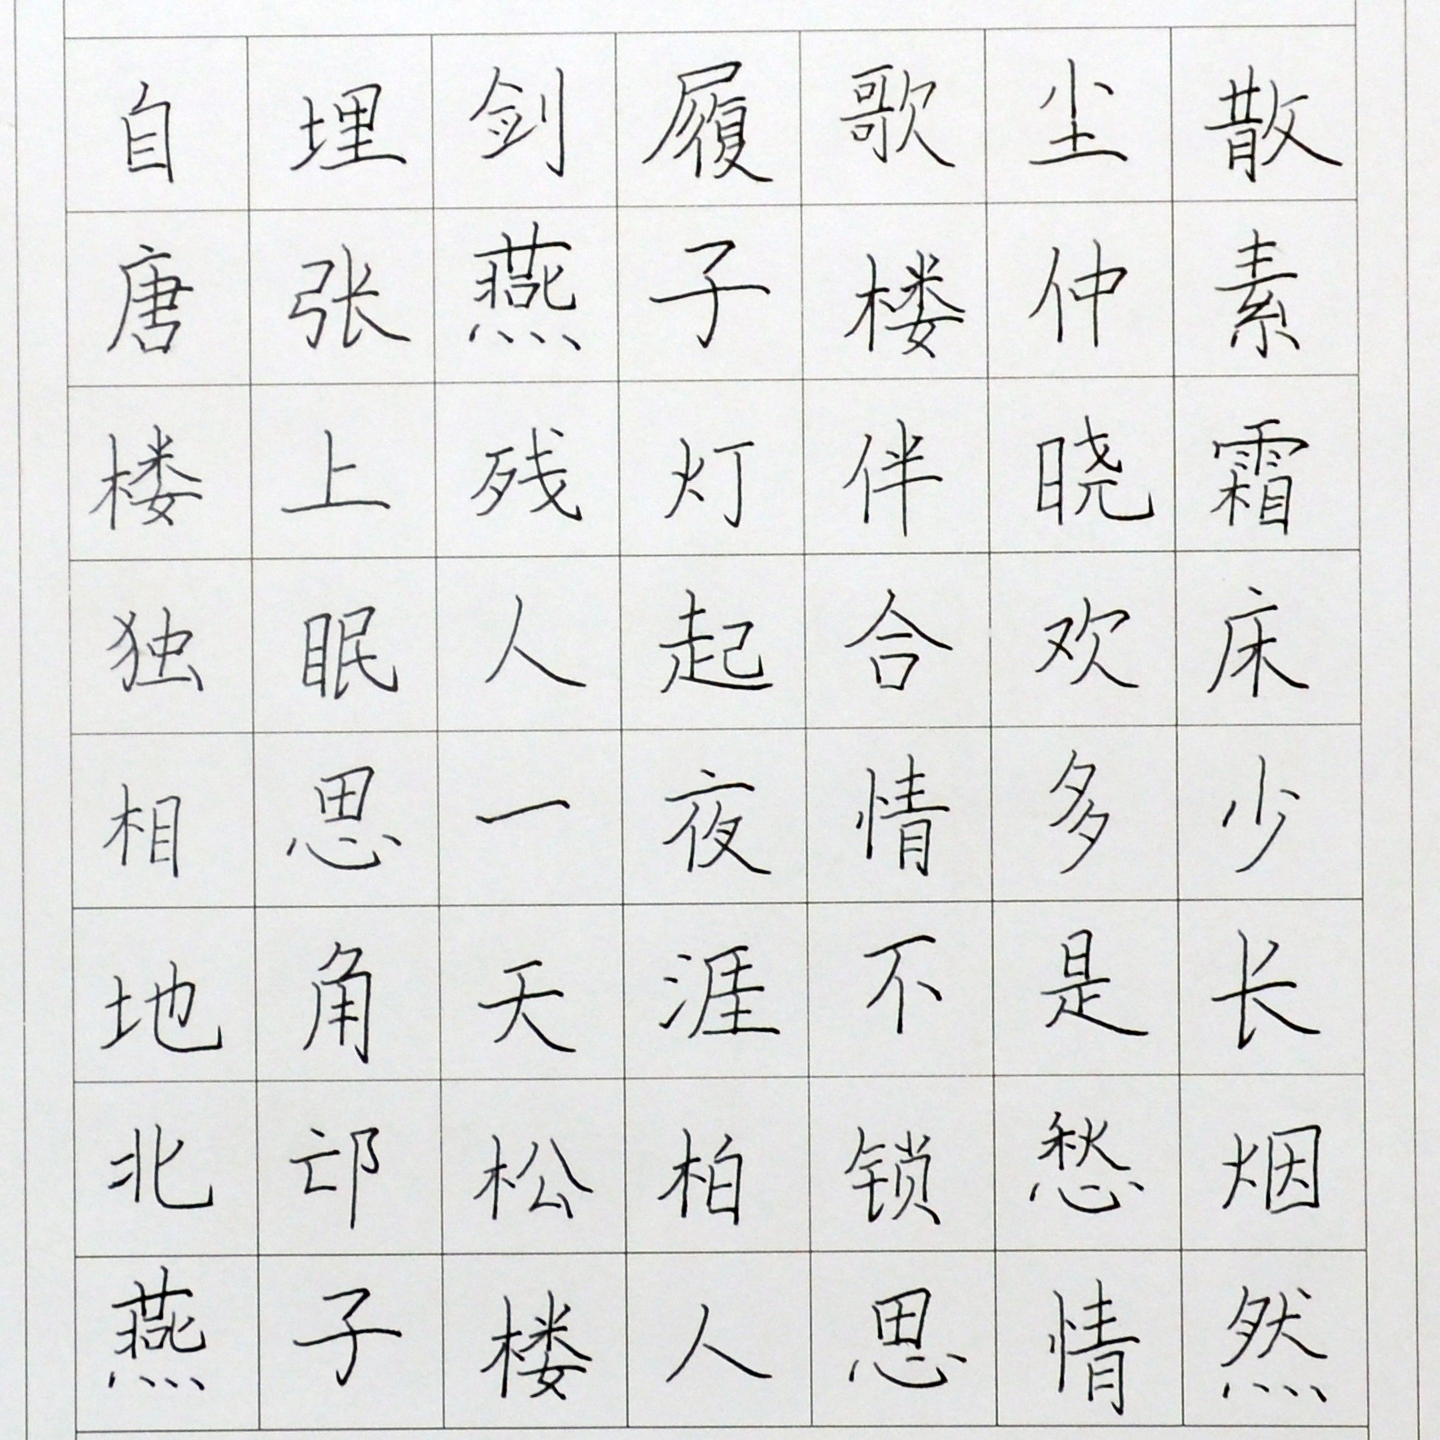 自埋剑履歌尘散
唐张燕子楼仲素
楼上残灯伴晓霜
独眠人起合欢床
相思一夜情多少
地角天涯不是长
北邙松柏锁愁烟
燕子楼人思情然